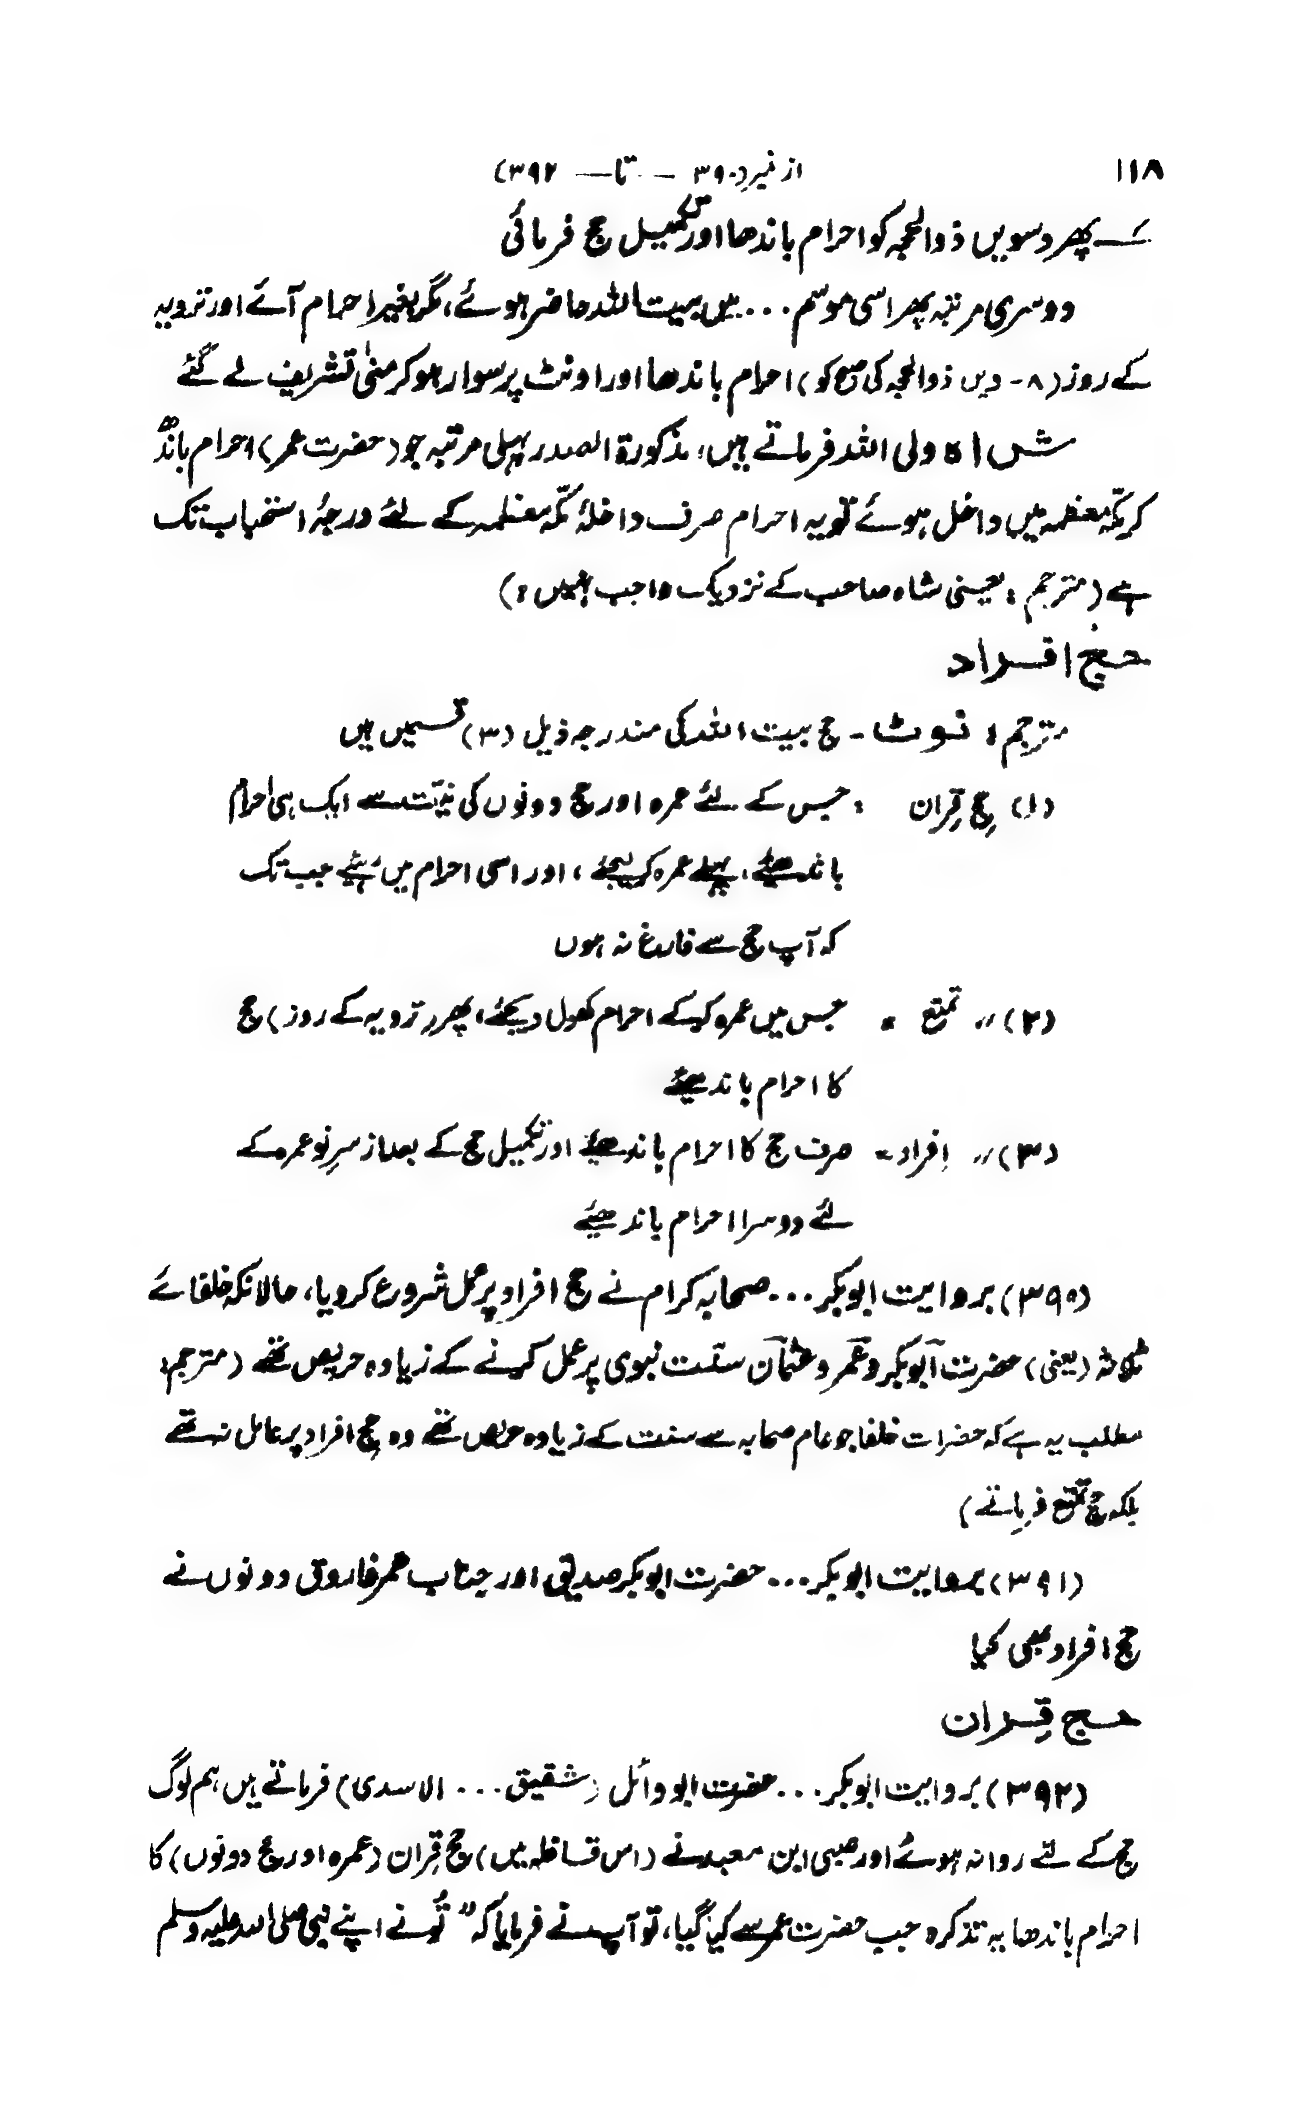 ۱۱۸ از نمبر (۳۹۰ — تا — ۳۹۲)
کے پھر دسویں ذوالحجہ کو احرام باندھا اور تکمیل حج فرمائی
دوسری مرتبہ پھر اسی موسم ... میں بیت اللہ حاضر ہوئے، مگر بغیر احرام آئے اور ترویہ
کے روز (۸ - دیں ذوالحجہ کی صبح کو) احرام باندھا اور اونٹ پر سوار ہو کر منیٰ تشریف لے گئے
شاہ ولی اللہ فرماتے ہیں: مذکورۃ الصدر پہلی مرتبہ جو (حضرت عمر) احرام باندھ
کر مکّہ معظمہ میں داخل ہوئے تو یہ احرام صرف داخلۂ مکّہ معظمہ کے لئے درجۂ استحباب تک
ہے (مترجم: یعنی شاہ صاحب کے نزدیک واجب نہیں:)
حج افراد
مترجم: نوٹ - حج بیت اللہ کی مندرجہ ذیل (۳) قسمیں ہیں
(۱) حج قِران : جس کے لئے عمرہ اور حج دونوں کی نیّت سے ایک ہی احرام
باندھیئے، پہلے عمرہ کر لیجئے، اور اسی احرام میں رہیئے جب تک
کہ آپ حج سے فارغ نہ ہوں
(۲) 〃 تمتع = جس میں عمرہ کر کے احرام کھول دیجئے، پھر (ترویہ کے روز) حج
کا احرام باندھیئے
(۳) 〃 اِفراد = صرف حج کا احرام باندھیئے اور تکمیل حج کے بعد از سرِ نو عمرہ کے
لئے دوسرا احرام باندھیئے
(۳۹۰) بروایت ابوبکر ... صحابہ کرام نے حج افراد پر عمل شروع کر دیا، حالانکہ خلفائے
ثلاثہ (یعنی) حضرت ابوبکر و عمر و عثمان سنّت نبوی پر عمل کرنے کے زیادہ حریص تھے (مترجم:
مطلب یہ ہے کہ حضرات خلفا جو عام صحابہ سے سنت کے زیادہ حریص تھے وہ حج افراد پر عامل نہ تھے
بلکہ حج تمتع فرماتے)
(۳۹۱) بروایت ابوبکر ... حضرت ابوبکر صدیق اور جناب عمر فاروق دونوں نے
حج افراد بھی کیا
حج قِران
(۳۹۲) بروایت ابوبکر ... حضرت ابو وائل (شقیق ... الاسدی) فرماتے ہیں ہم لوگ
حج کے لئے روانہ ہوئے اور صبی ابن معبد نے (اس قافلہ میں) حج قِران (عمرہ اور حج دونوں) کا
احرام باندھا یہ تذکرہ جب حضرت عمر سے کیا گیا، تو آپ نے فرمایا کہ "تُو نے اپنے نبی صلی اللہ علیہ وسلم